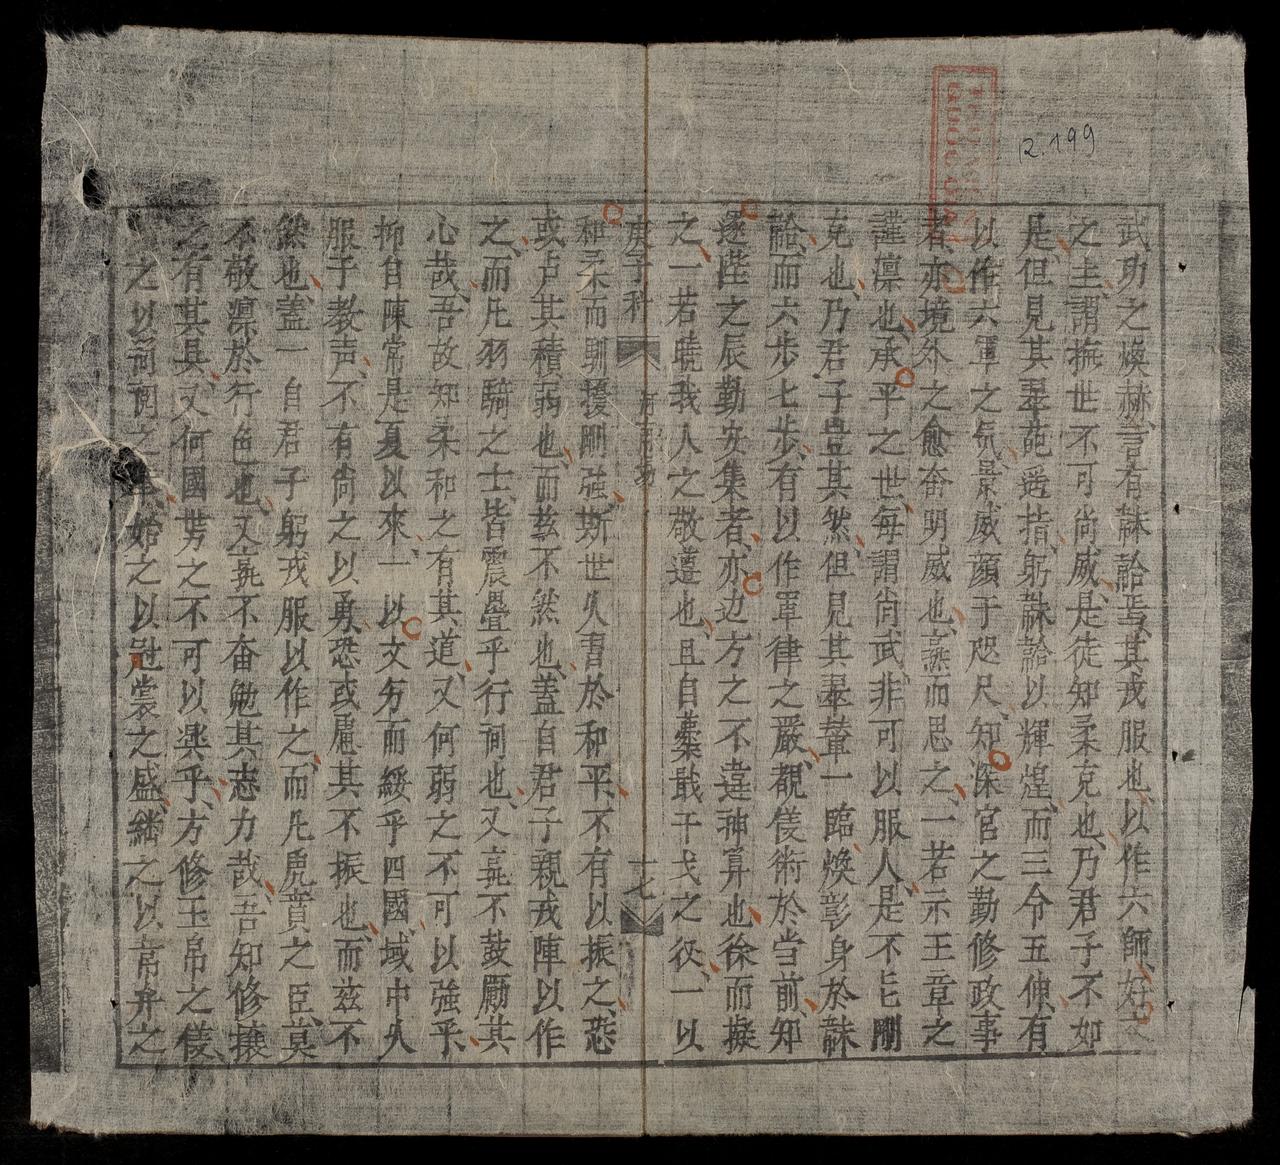 12.199
武功之煥赫、言有韎韐焉、其戎服也、以作六師、好文
之主、謂撫世不可尚威、是徒知柔克也、乃君子不如
是、但見其翠葩遥指、躬韎韐以輝煌、而三令五伸、有
以作六軍之氛景、威顔于咫尺、知深官之勤修政事
者、亦境外之愈奮明威也、讌而思之、一若示王章之
謹凛也、承平之世、每謂尚武、非可以服人、是不士剛
克也、乃君子豈其然、但見其翠輦一臨、煥彰身於韎
韐、而六步七步、有以作軍律之嚴、覩儀術於当前、知
遂陛之辰勤安集者、亦边方之不違神算也、徐而擬
之、一若曉我人之敬遵也、且自櫜戢干戈之役、一以
庚子科 河南功 十七
和柔而馴擾剛強、斯世久書於和平、不有以振之、恐
或占其積弱也、而茲不然也、蓋自君子親戎陣以作
之、而凡羽騎之士、皆震疊乎行间也、又竟不鼓勵其
心哉、吾故知柔和之有其道、又何弱之不可以強乎、
抑自陳常是夏以來、一以文芳而綏乎四國、域中久
服于教声、不有尚之以勇、恐或慮其不振也、而茲不
然也、蓋一自君子躬戎服以作之、而凡虎賁之臣、莫
不敬凛於行色也、又竟不奮勉其志力哉、吾知修攘
之有其具、又何國勞之不可以興乎、方修玉帛之儀、
之以 始之以冠裳之盛、継之以帝弁之